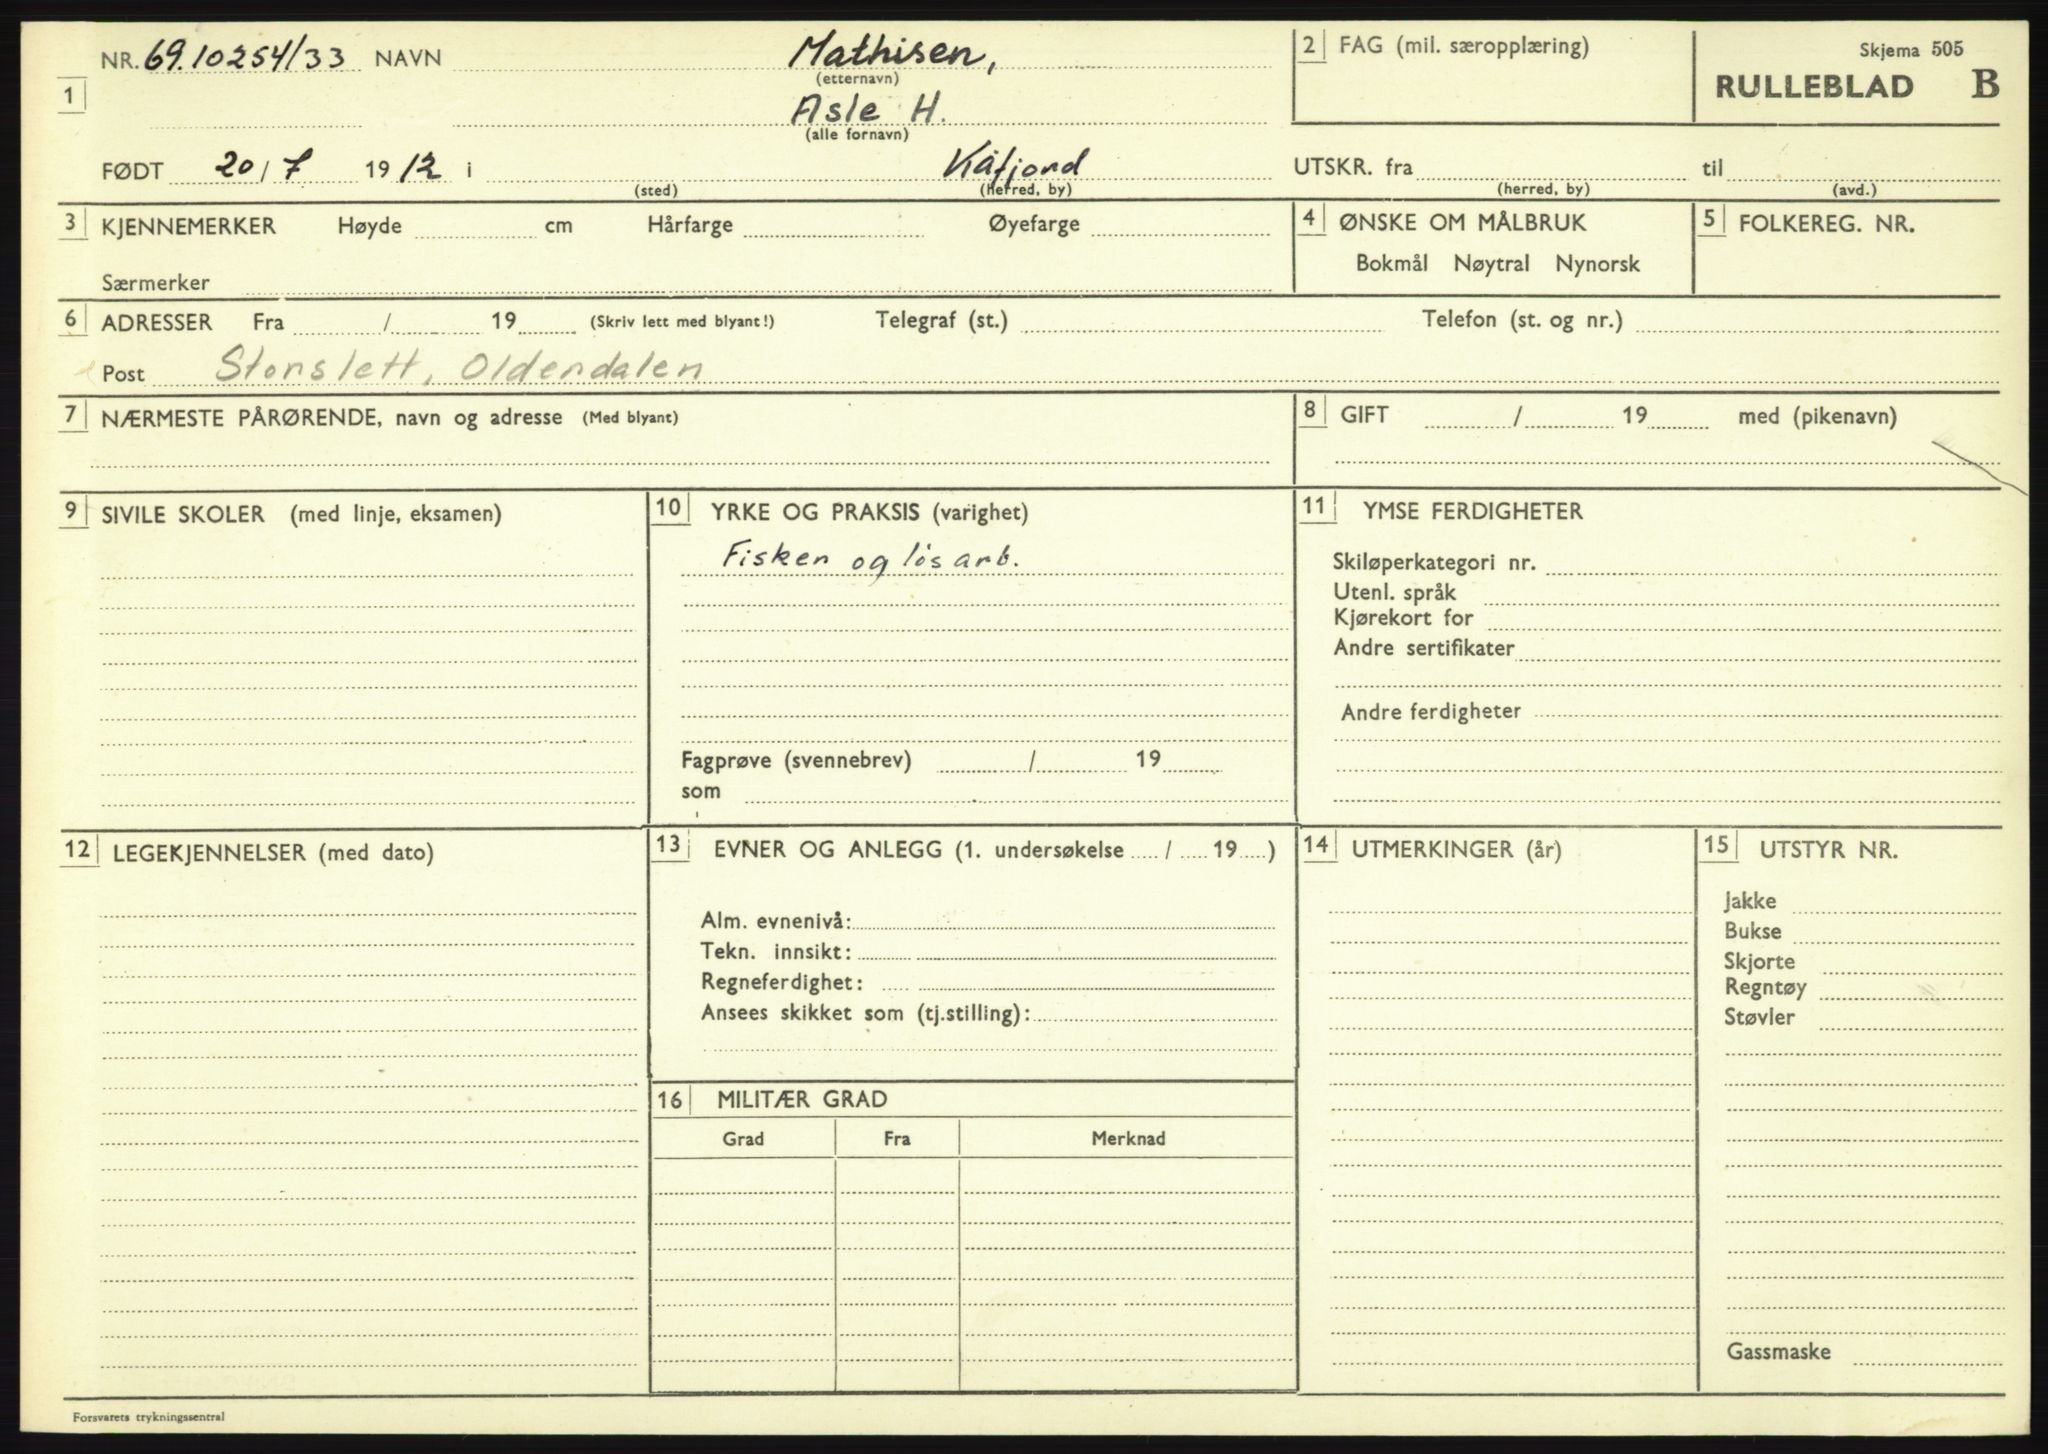 NR. 69.10254/33 NAVN Mathisen,
(etternavn)
2 FAG (mil. særopplæring)
Skjema 505
RULLEBLAD B
1
Asle H.
(alle fornavn)
FØDT 20/7 1912 i Kåfjord
(sted) (herred, by)
UTSKR. fra til
(herred, by) (avd.)
3 KJENNEMERKER Høyde cm Hårfarge Øyefarge
Særmerker
4 ØNSKE OM MÅLBRUK
Bokmål Nøytral Nynorsk
5 FOLKEREG. NR.
6 ADRESSER Fra / 19 (Skriv lett med blyant!) Telegraf (st.) Telefon (st. og nr.)
Post Storslett, Oldendalen
7 NÆRMESTE PÅRØRENDE, navn og adresse (Med blyant)
8 GIFT / 19 med (pikenavn)
9 SIVILE SKOLER (med linje, eksamen)
10 YRKE OG PRAKSIS (varighet)
Fisker og løsarb.
Fagprøve (svennebrev) / 19
som
11 YMSE FERDIGHETER
Skiløperkategori nr.
Utenl. språk
Kjørekort for
Andre sertifikater
Andre ferdigheter
12 LEGEKJENNELSER (med dato)
13 EVNER OG ANLEGG (1. undersøkelse / 19 )
Alm. evnenivå:
Tekn. innsikt:
Regneferdighet:
Ansees skikket som (tj.stilling):
16 MILITÆR GRAD
Grad Fra Merknad
14 UTMERKINGER (år)
15 UTSTYR NR.
Jakke
Bukse
Skjorte
Regntøy
Støvler
Gassmaske
Forsvarets trykningssentral